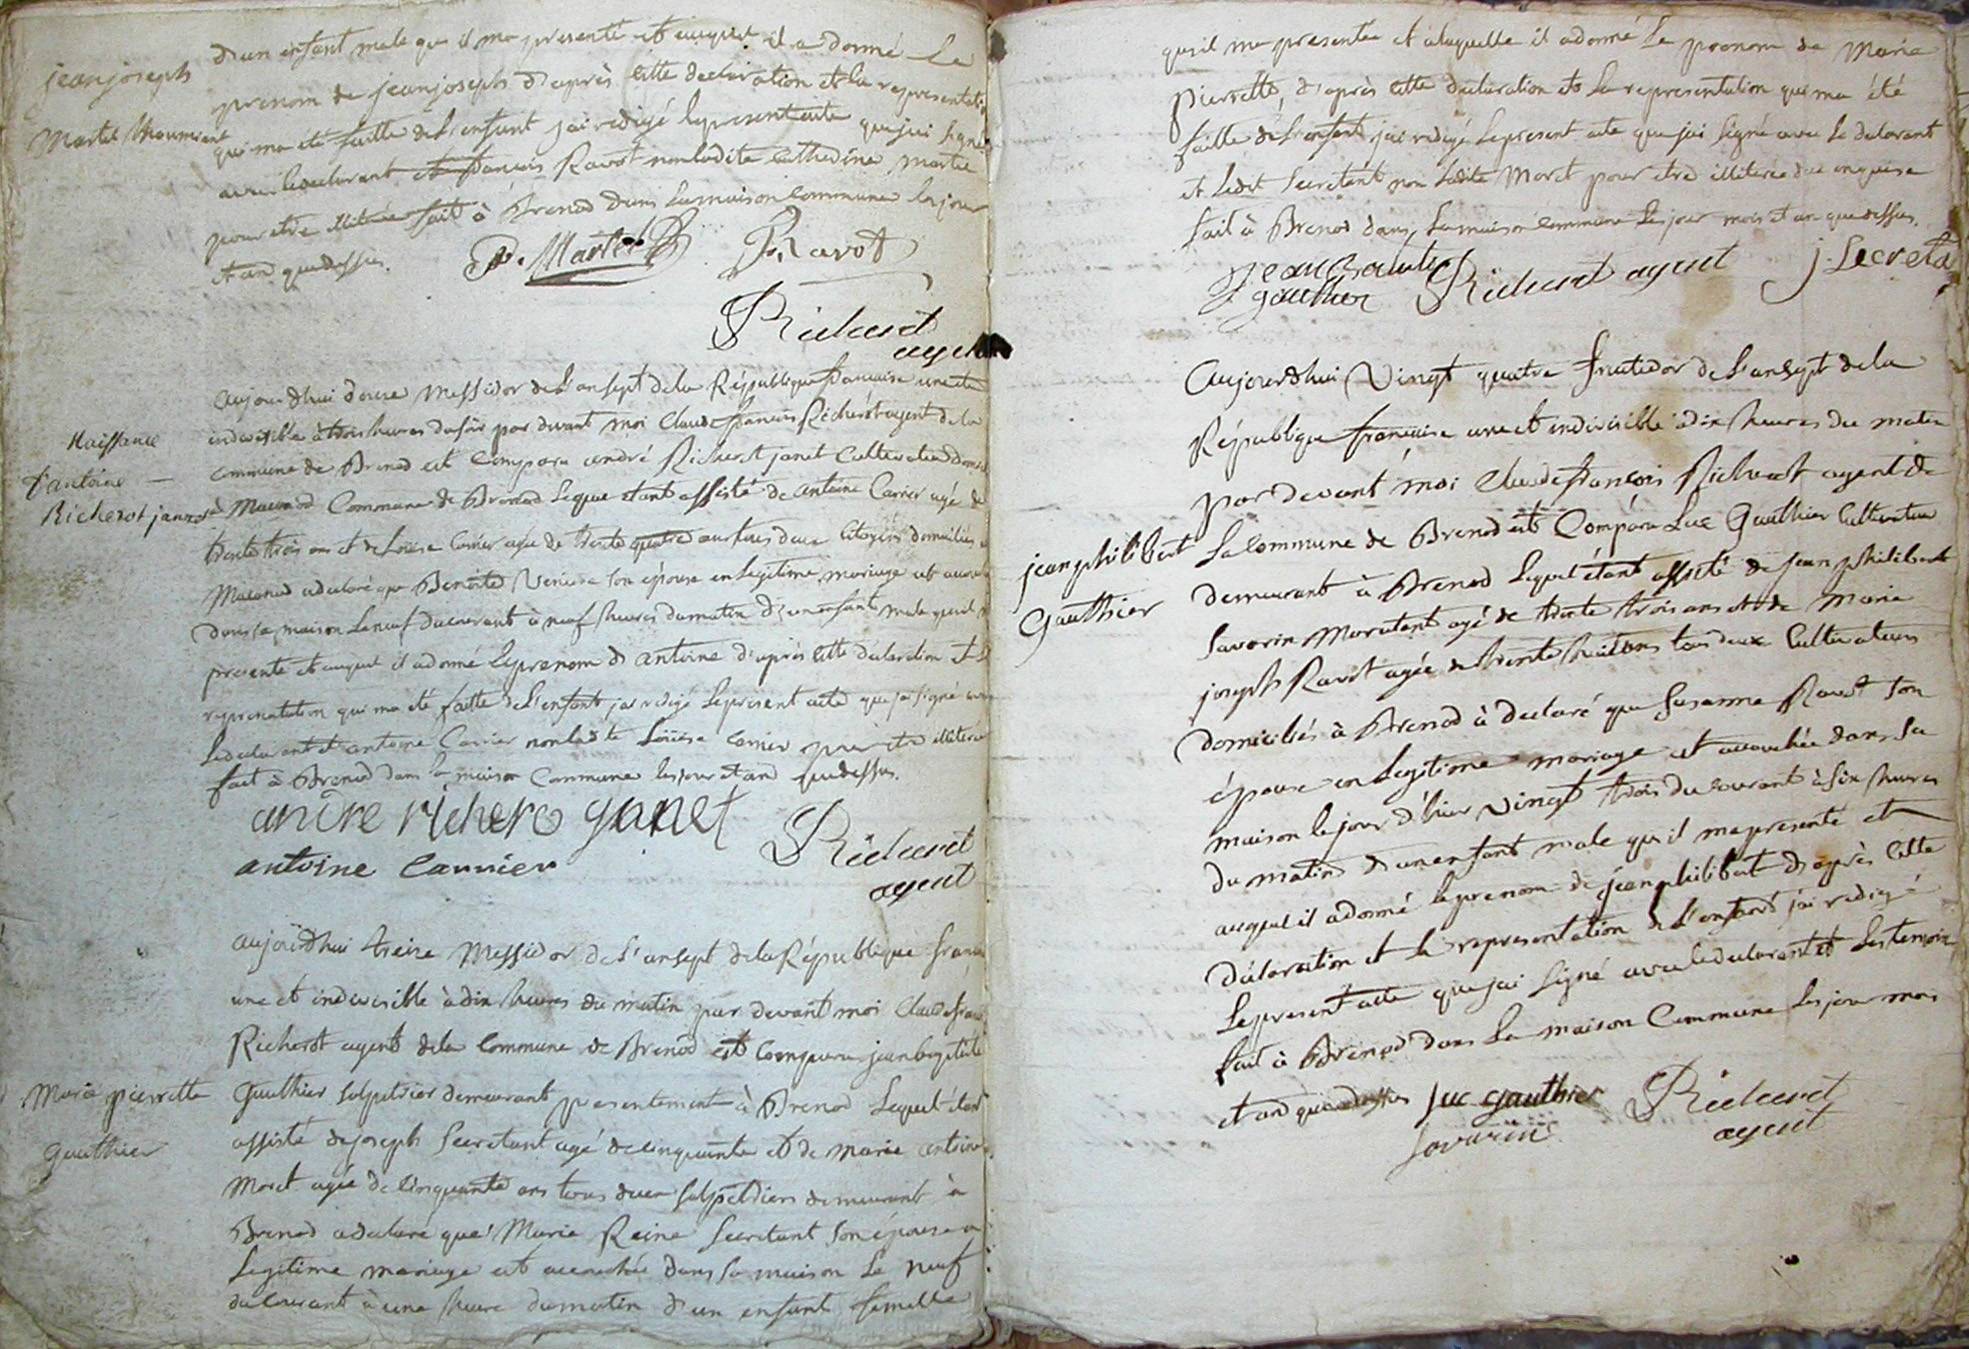 d'un enfant male qu il ma presenté et auquel il a donné Le
jeanjoseph
prenom de jeanjoseph d'après cette declaration et la representation
Martel
qui ma été faitte de L'enfant jai redigé lepresent acte que jai signé
avec ledeclarant et francois Ravot non ladite Catherine Martel
pour etre illiterée fait à Brenod dans La maison commune les jour
et an que dessus.
P. Martel Ravot
Richerot
agent
aujourdhui douze Messidor de L'an sept dela République francaise une et
indivisible à trois heures du soir par devant moi Claude francois Richerot agent de la
Naissance
commune de Brenod est comparu andré Richerot janet Cultivateur
d'antoine
Richerot janet
à Macconod Commune de Brenod Lequel etant assisté de antoine Carrier agé de
trente trois ans et de Louise Carrier agée de trente quatre ans tous deux Citoyens domiciliés à
Maconod a declaré que Benoite son épouse en Legitime mariage est accouchée
dans sa maison Le neuf du courant à neuf heures du matin d'un enfant male quil
presenté et auquel il a donné Le prenom d antoine d'après cette declaration et
representation qui ma été faitte de L'enfant jai redigé Lepresent acte que jai signé avec
Ledeclarant et antoine Carrier non ladite Louise Carrier pour etre illiterée
fait à Brenod dans la maison Commune les jour et an que dessus.
andre richero ganet
Richerot
antoine Carrier
agent
aujourdhui treize Messidor de L'an sept dela République
une et indivisible à dix heures du matin par devant moi Claude
Richerot agent dela Commune de Brenod est comparu jean baptiste
Marie pierrette
Gauthier salpetrier demeurant presentement à Brenod Lequel étant
Gauthier
assisté de joseph Secretant agé de cinquante et de Marie antoine
Moret agée de Cinquante ans tous deux salpetriers demeurant à
Brenod a declaré que Marie Reine Secretant son épouse
Legitime mariage est accouchée dans sa maison Le neuf
du courant à une heure du matin d'un enfant femelle
quil ma presentée et àlaquelle il a donné Le prenom de Marie
Pierrette, d'après cette declaration et La representation qui ma été
faitte de L'enfant jai redigé Lepresent acte que jai signé avec Le declarant
et Ledit Secretant non Ladite Moret pour etre illiterée
fait à Brenod dans La maison commune les jour mois et an que dessus.
jean Baptiste
gauthier Richerot agent j. Secreta
Aujourdhui Vingt quatre fructidor de L'an sept de la
République francaise une et indivisible à dix heures du matin
par devant moi Claude francois Richerot agent de
jeanphilibert
La Commune de Brenod est Comparu Luc Gauthier Cultivateur
Gauthier
demeurant à Brenod Lequel étant assisté de jean philibert
Savarin agé de trente trois ans et de Marie
joseph Ravot agée de trente huit ans tous deux Cultivateurs
domiciliés à Brenod à declaré que Susanne Ravot son
épouse en Legitime mariage est accouchée dans sa
maison le jour d'hier vingt trois du courant à six heures
du matin d'un enfant male qu'il ma presenté et
auquel il a donné Le prenom de jeanphilibert d'après Cette
déclaration et la representation de L'enfant jai redigé
Lepresent acte que jai signé avec ledeclarant et Les temoins
fait à Brenod dans La maison Commune Les jour mois
et an que dessus Luc gauthier Richerot
Savarin agent